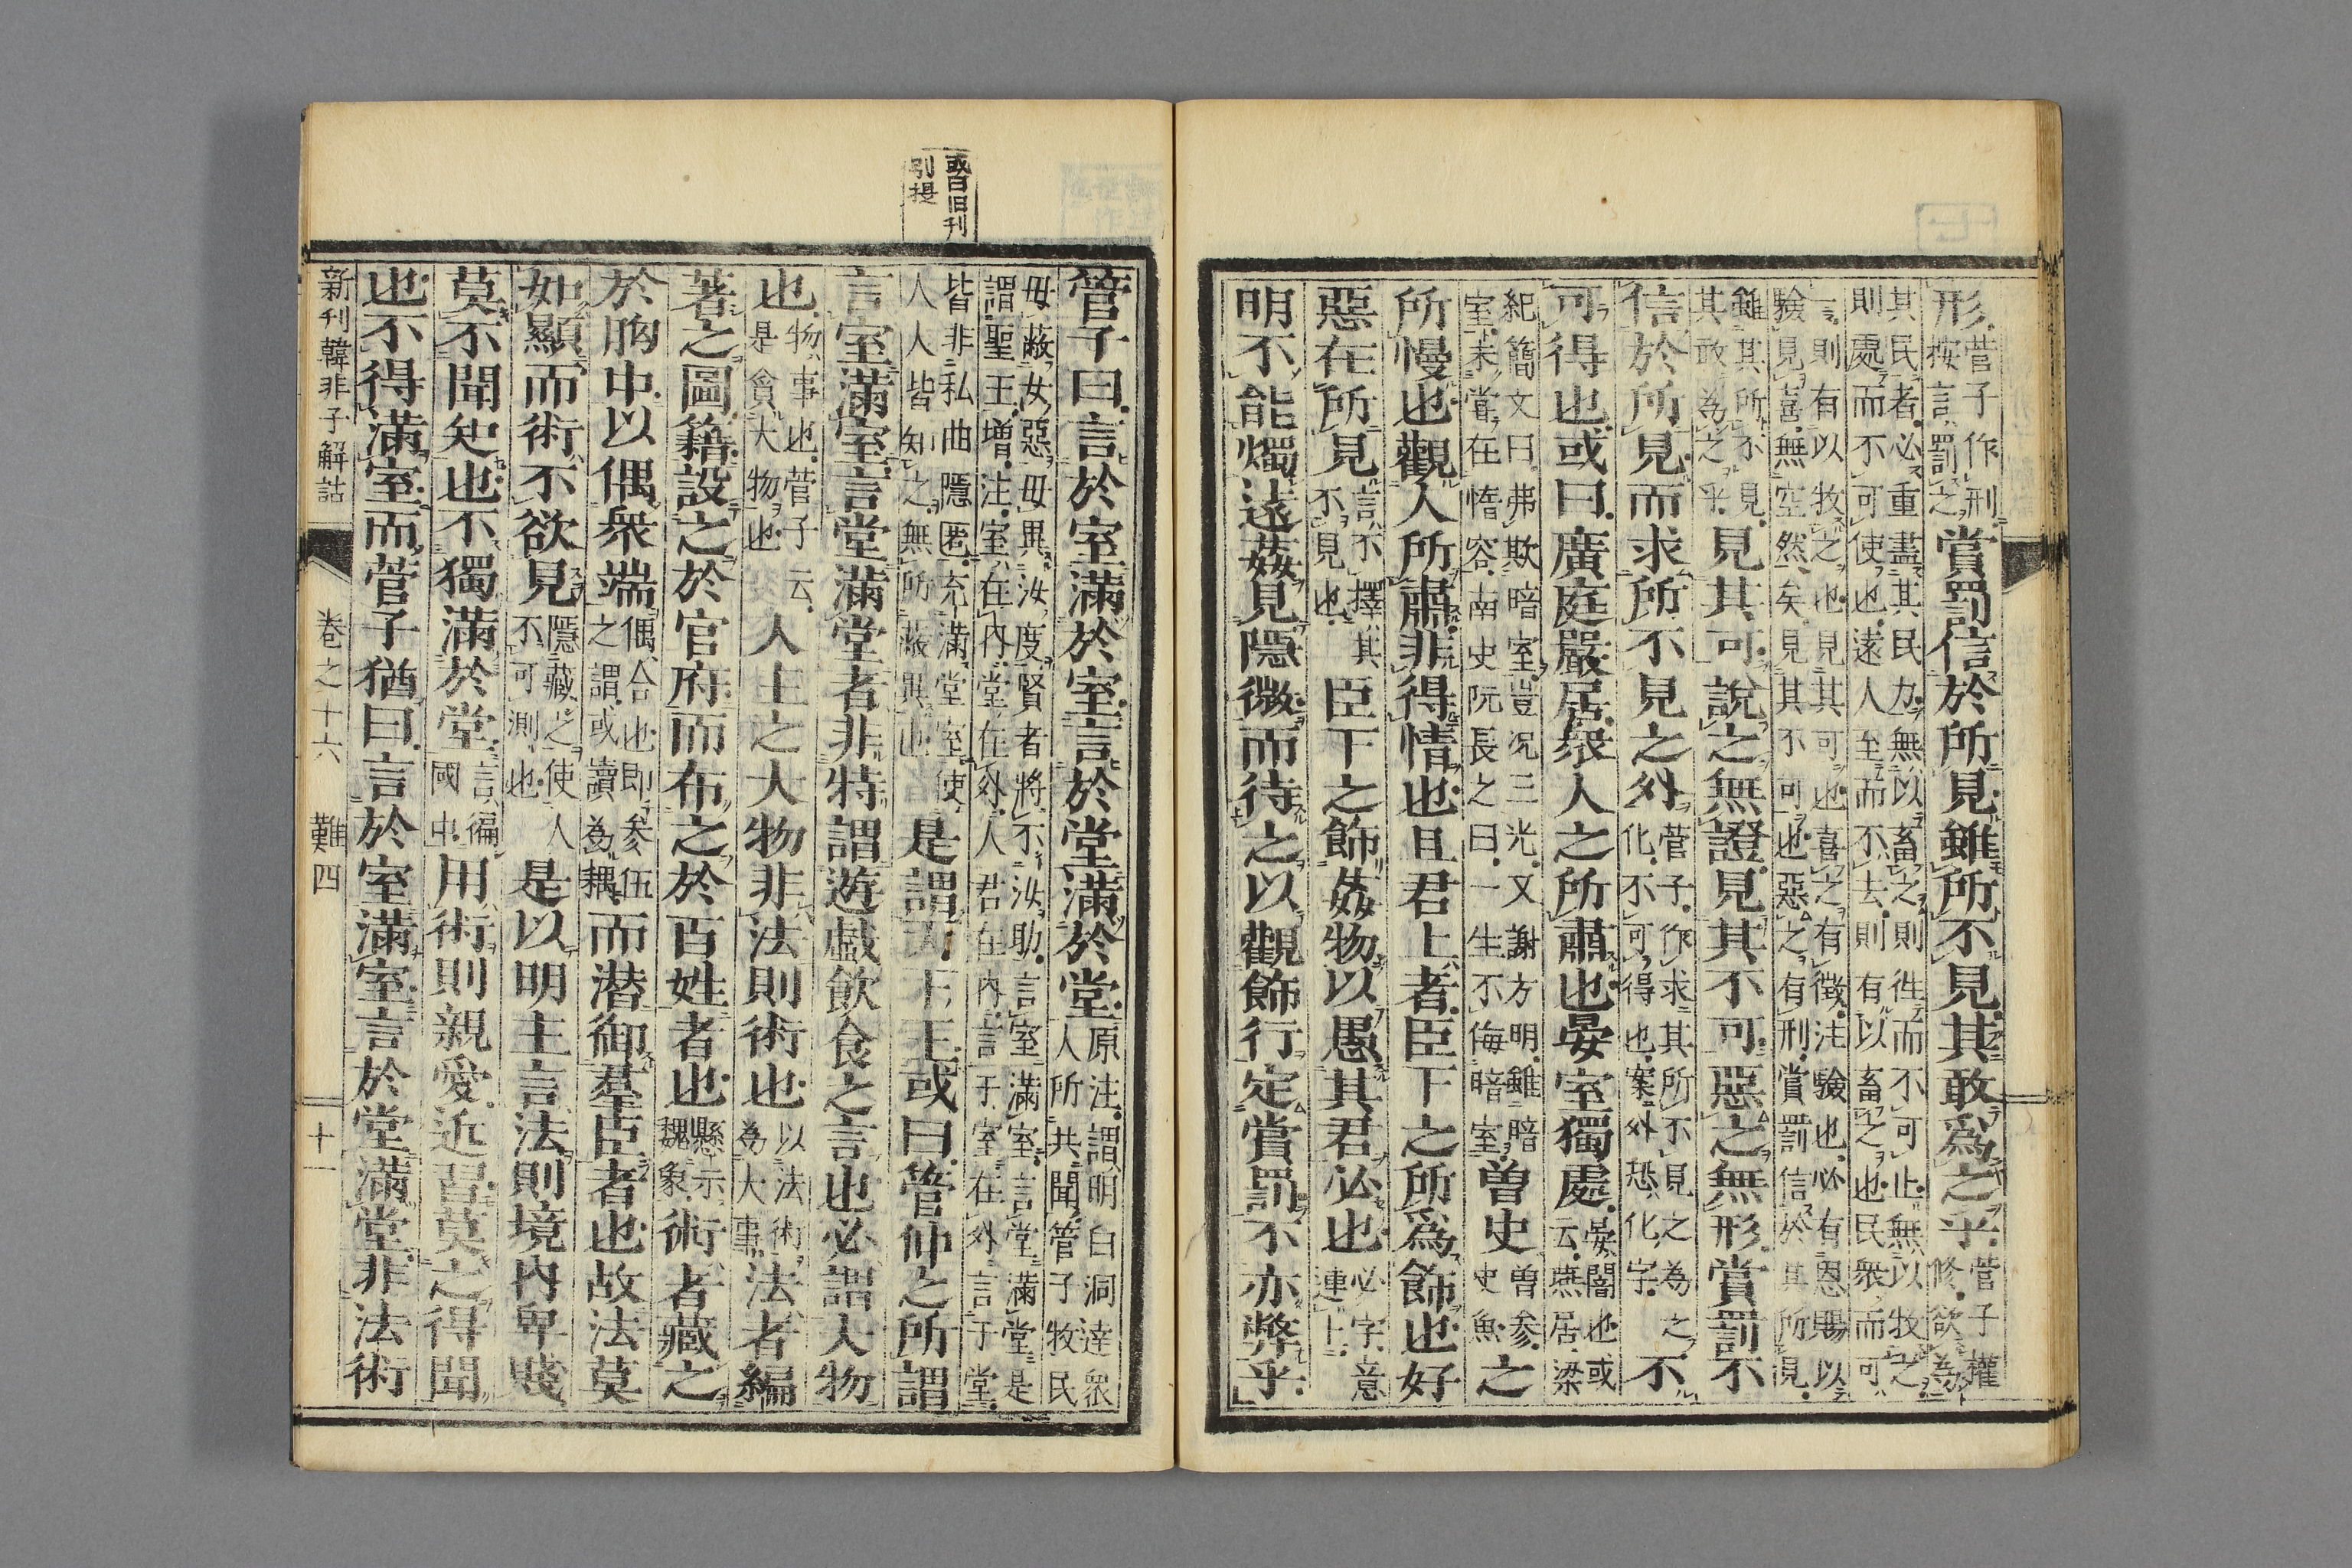 形菅子作刑按言罰之賞罰信於所見雖所不見其敢爲之乎菅子權修欲為
其民者必重盡其民力無以畜之則徃而不可止無以牧之
則處而不可使也遠人至而不去則有以畜之也民衆而可
言則有以牧之也見其可也喜之有徵注驗也必有恩賜以
驗見喜無空然矣見其不可也惡之有刑賞罰信於其所見
雖其所不見
其敢為之乎見其可說之無證見其不可惡之無形賞罰不
信於所見而求所不見之外菅子作求其所不見之為之化不可得也案外恐化字不
可得也或曰廣庭嚴居衆人之所肅也晏室獨處晏闇也或云燕居梁
紀簡文曰弗欺暗室豈况三光又謝方明雖暗
室未嘗在惰容南史阮長之曰一生不侮暗室曽史曽参史魚之
所慢也觀人所肅非得情也且君上者臣下之所爲飾也好
惡在所見言不擇其不見也臣下之飾姦物以愚其君必也必字意連上
明不能燭遠姦見隱微而待之以觀飾行定賞罰不亦弊乎
管子曰言於室滿於室言於堂滿於堂原注謂明白洞達衆人所共聞管子牧民
毋蔽女惡毋異汝度賢者將不汝助言室滿室言堂滿堂是
謂聖王増注室在内堂在外人君在内言于室在外言于堂
皆非私曲隱匿充滿堂室使
人人皆知之無所蔽異也是謂天下王或曰管仲之所謂
言室滿室言堂滿堂者非特謂遊戯飲食之言也必謂大物
也物事也菅子云是貪大物也人主之大物非法則術也以法術為大事法者編
著之圖籍設之於官府而布之於百姓者也懸示魏象術者藏之
於胸中以偶衆端偶合也即参伍之謂或讀為耦而潜御羣臣者也故法莫
如顯而術不欲見隱藏之使人不可測也是以明主言法則境内卑賤
莫不聞知也不獨滿於堂言徧國中用術則親愛近習莫之得聞
也不得滿室而菅子猶曰言於室滿室言於堂滿堂非法術
或曰旧刊
別提
新刊韓非子解詁 卷之十六 難四 十一